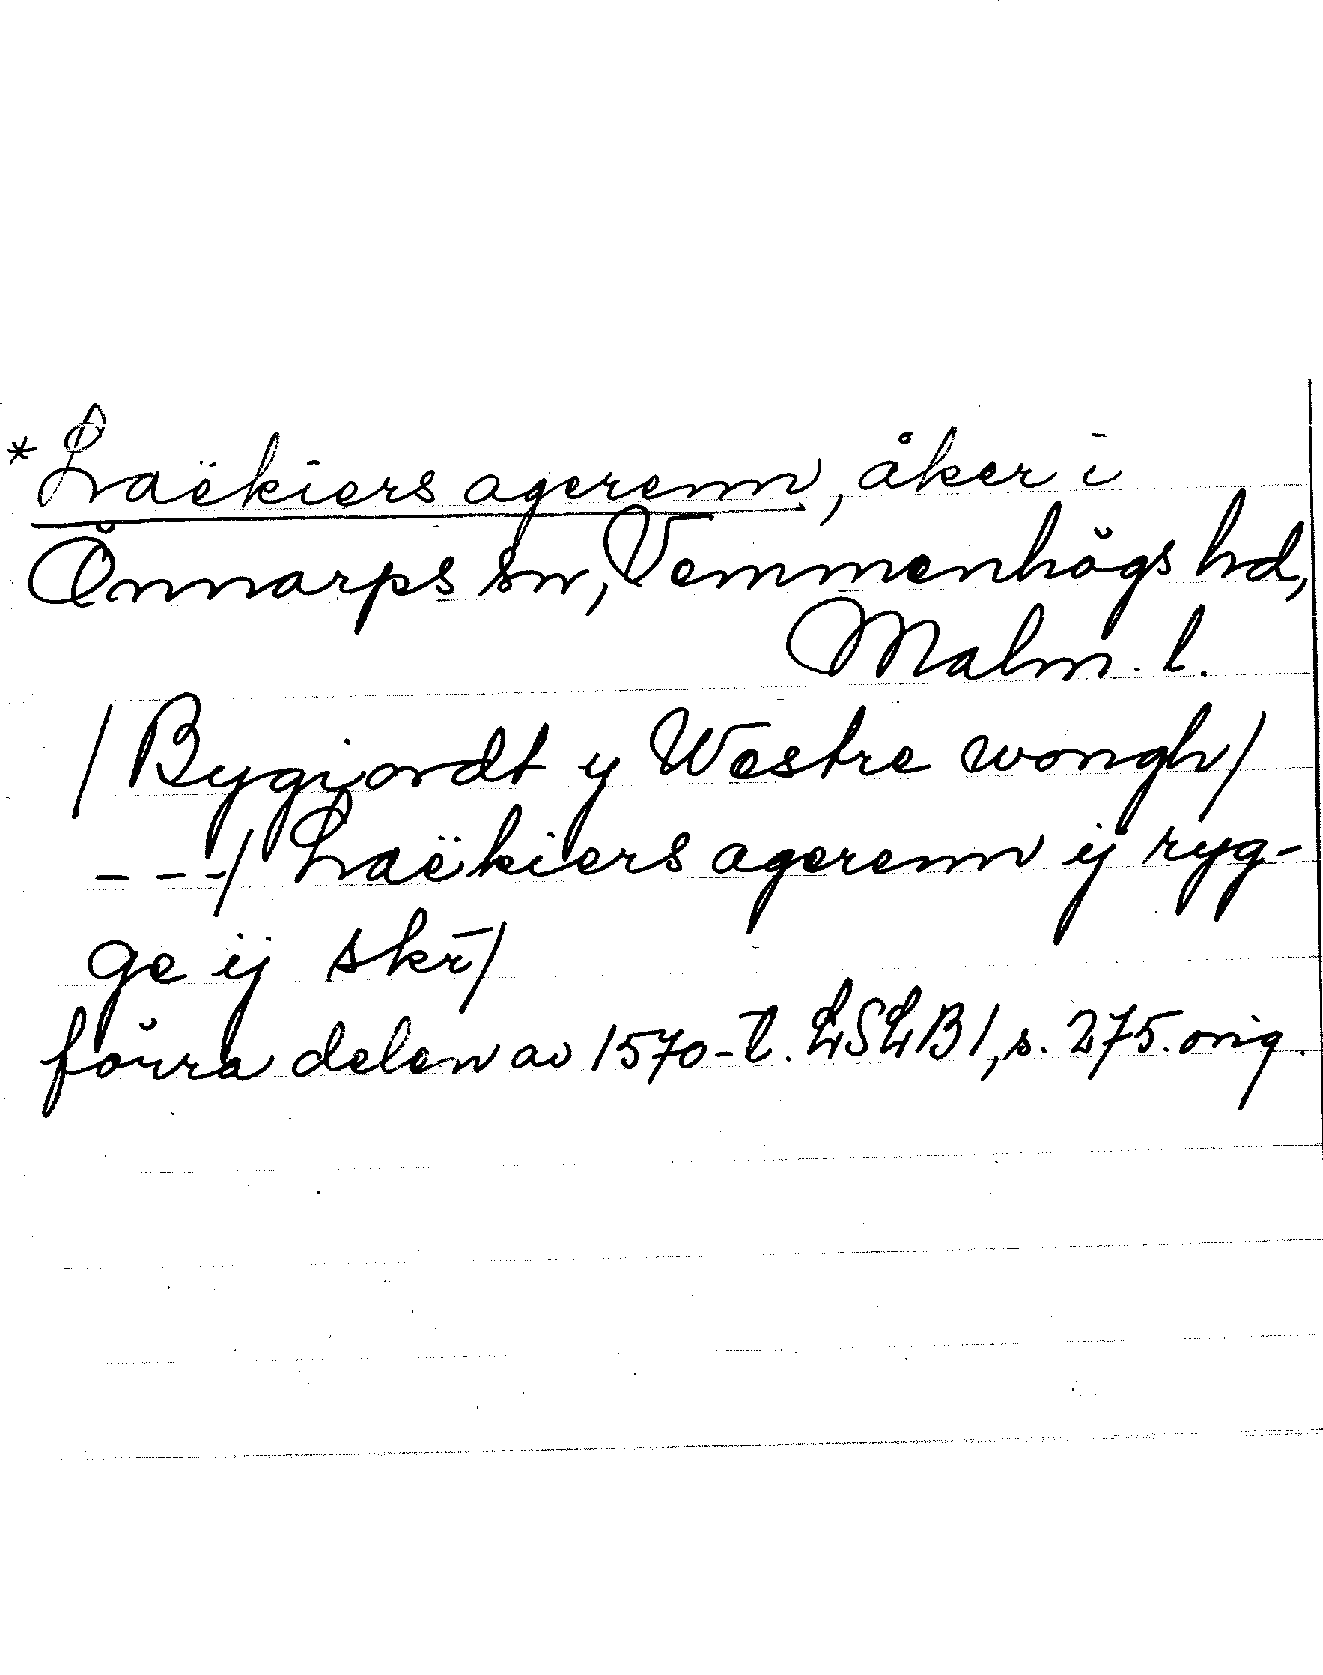 *Laëkiers agerenn, åker i
Önnarps sn, Vemmenhögs hd,
Malm. l.
/Bygiordt y Westre wongh/
---/ Laëkiers agerenn ij ryg-
ge ij skr̄/
förra delen av 1570-t. LSLB1, s. 275. orig.